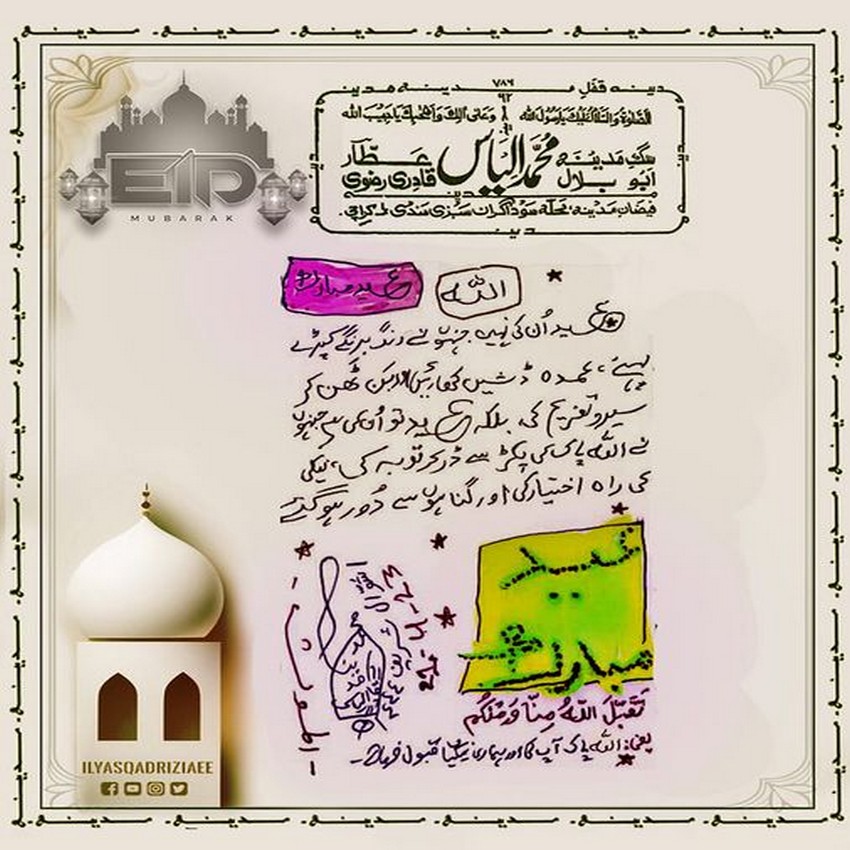 مدینہ قفلِ مدینہ مدینہ
٧٨٦
٩٢
الصلوۃ والسلام علیک یا رسول اللہ وعلی الک واصحبک یا حبیب اللہ
سگِ مدینہ محمد الیاس عطار
ابو بلال قادری رضوی
فیضانِ مدینہ، محلہ سوداگران سبزی منڈی کراچی۔
EID
MUBARAK
اللہ
عید مبارک
عید اُن کی نہیں جنہوں نے رنگ برنگے کپڑے
پہنے، عمدہ ڈشیں کھائیں اور بن ٹھن کر
سیر و تفریح کی، بلکہ عید تو اُن کی ہے جنہوں
نے اللہ پاک کی پکڑ سے ڈر کر توبہ کی، نیکی
کی راہ اختیار کی اور گناہوں سے دُور ہو گئے
عید
مبارک
الموت
تَقَبَّلَ اللہُ مِنَّا وَمِنْکُم
یعنی: اللہ پاک آپ کی اور ہماری نیکیاں قبول فرمائے۔
ILYASQADRIZIAEE